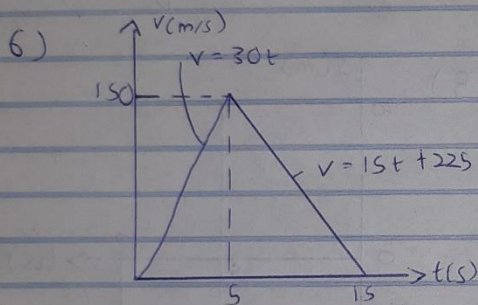 6)
v(m/s)
v = 30t
150
v = 15t + 225
t(s)
5
15